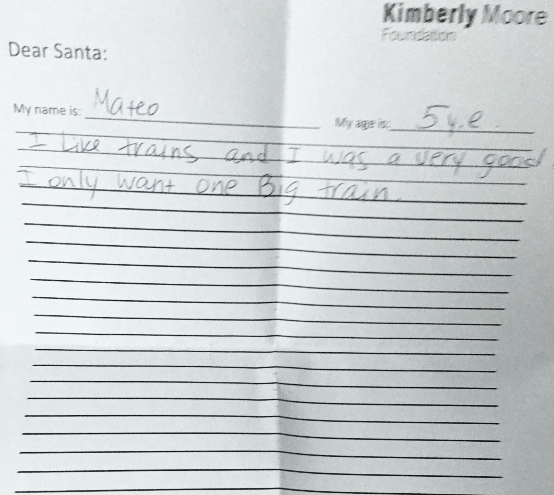 Kimberly Moore
Foundation
Dear Santa:
My name is: Mateo
My age is: 5 y.e.
I Like trains and I was a very good
I only want one Big train.